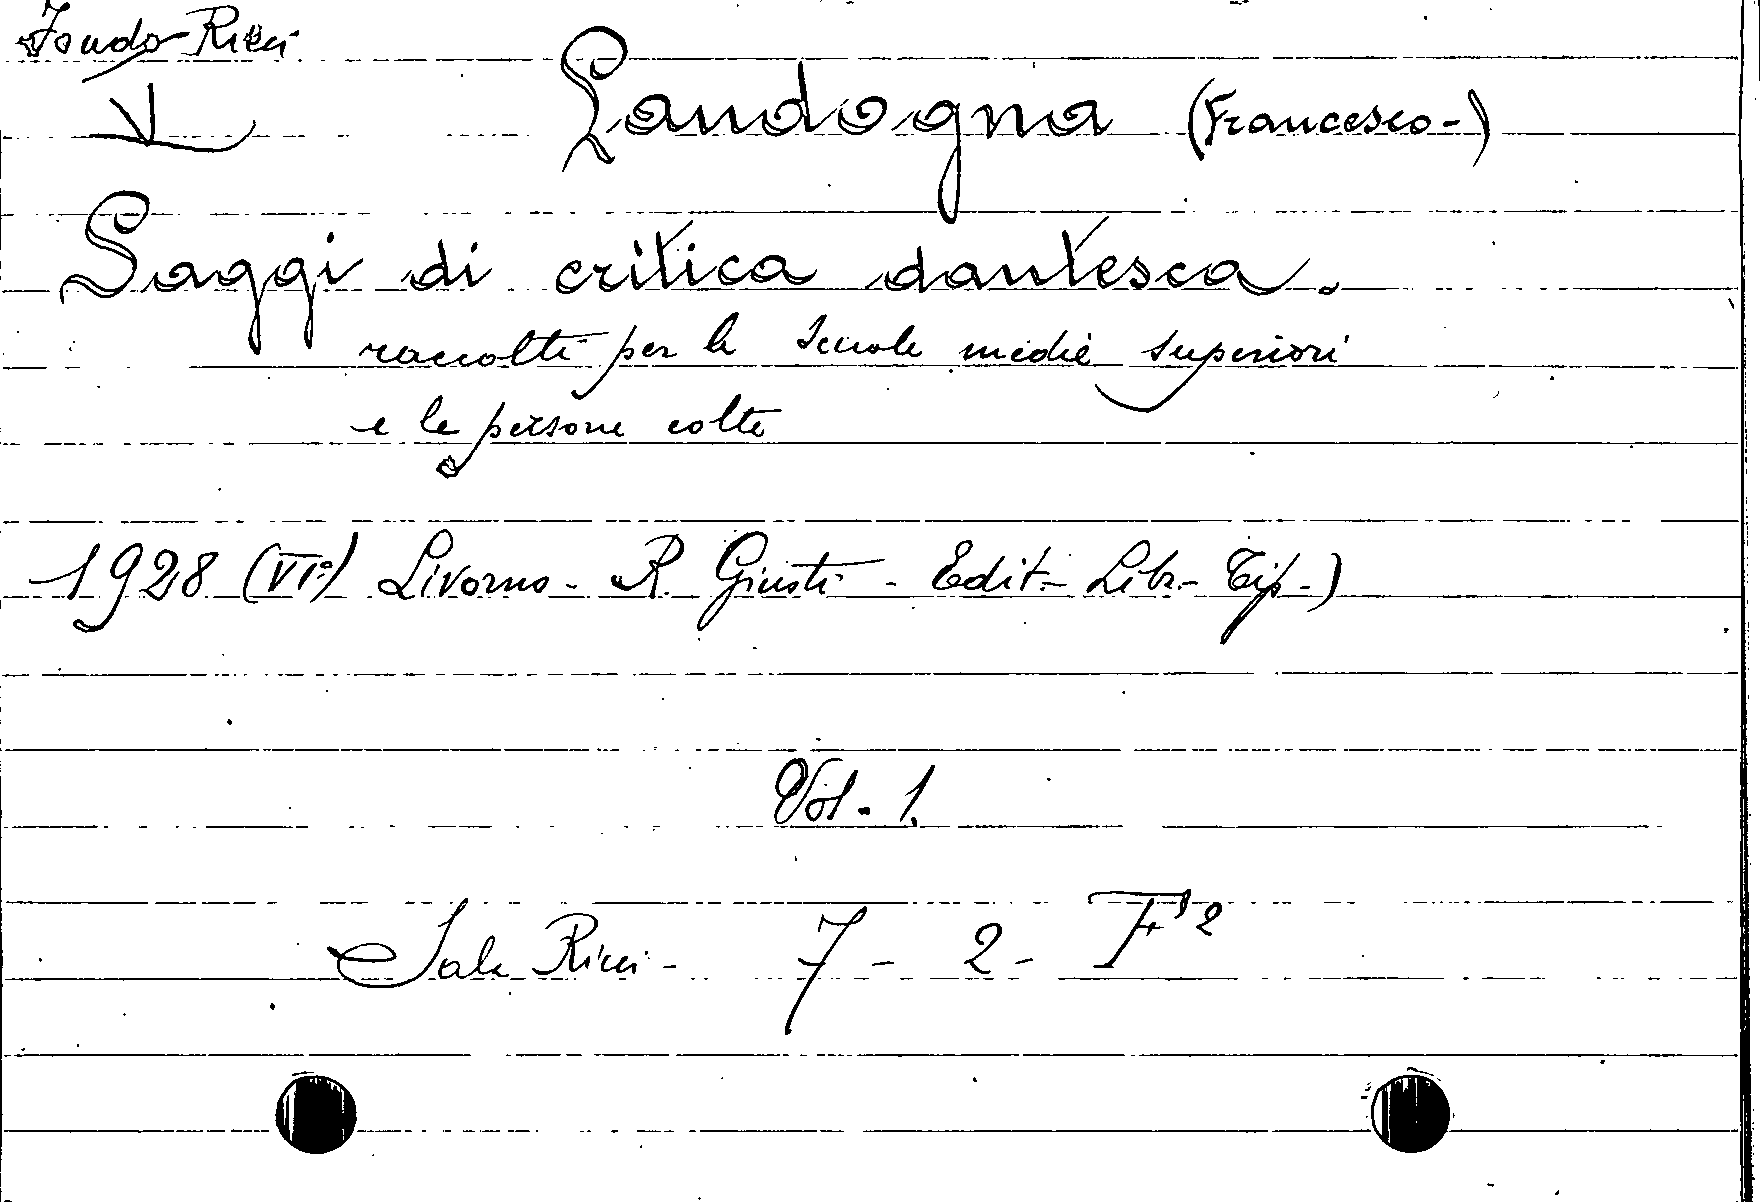 Fondo Ricci
V
Landogna (Francesco-)
Saggi di critica dantesca.
raccolti per le scuole medie superiori
e le persone colte
1928 (VIº) Livorno - R. Giusti - Edit - Libr - Tip -)
Vol - 1.
Sala Ricci - 7 - 2 - F 2